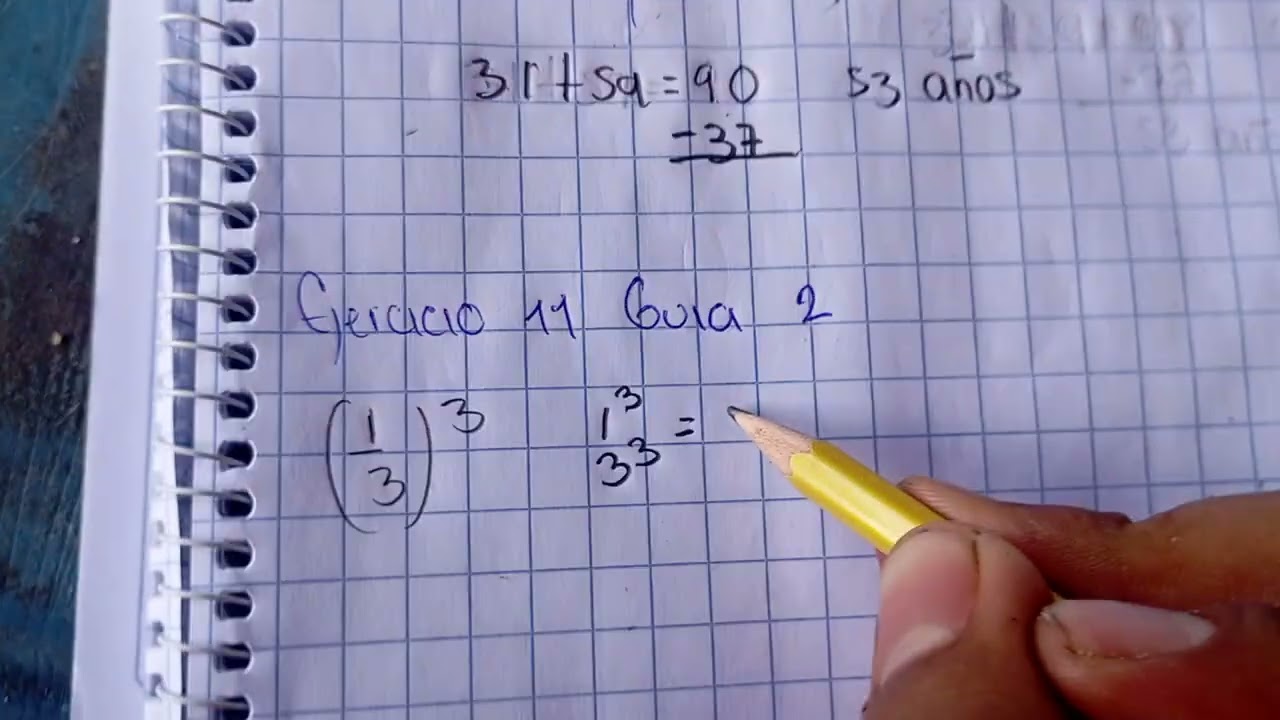 31+59=90 53 años
-37
Ejercicio 11 Guia 2
(1/3)³ 1³ =
3³